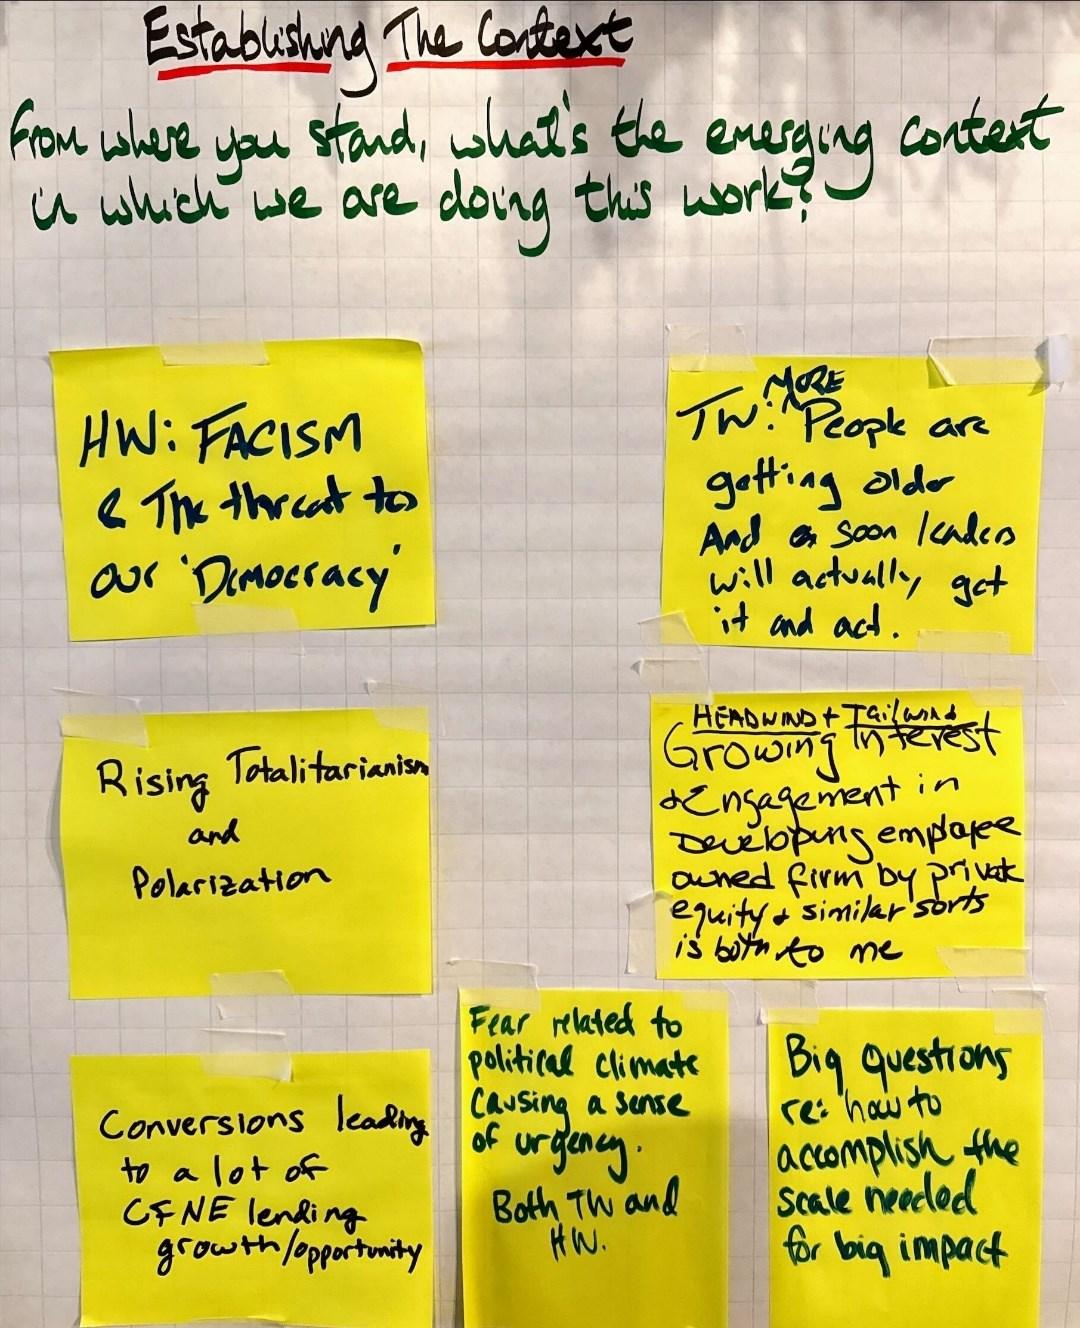 Establishing The Context
From where you stand, what's the emerging context
in which we are doing this work?
HW: FACISM
& The threat to
our 'Democracy'
TW: MORE People are
getting older
And soon leaders
will actually get
it and act.
Rising Totalitarianism
and
Polarization
HEADWIND + Tailwind
Growing Interest
+ Engagement in
Developing employee
owned firm by private
equity + similar sorts
is both to me
Conversions leading
to a lot of
CFNE lending
growth/opportunity
Fear related to
political climate
causing a sense
of urgency.
Both TW and
HW.
Big Questions
re: how to
accomplish the
scale needed
for big impact